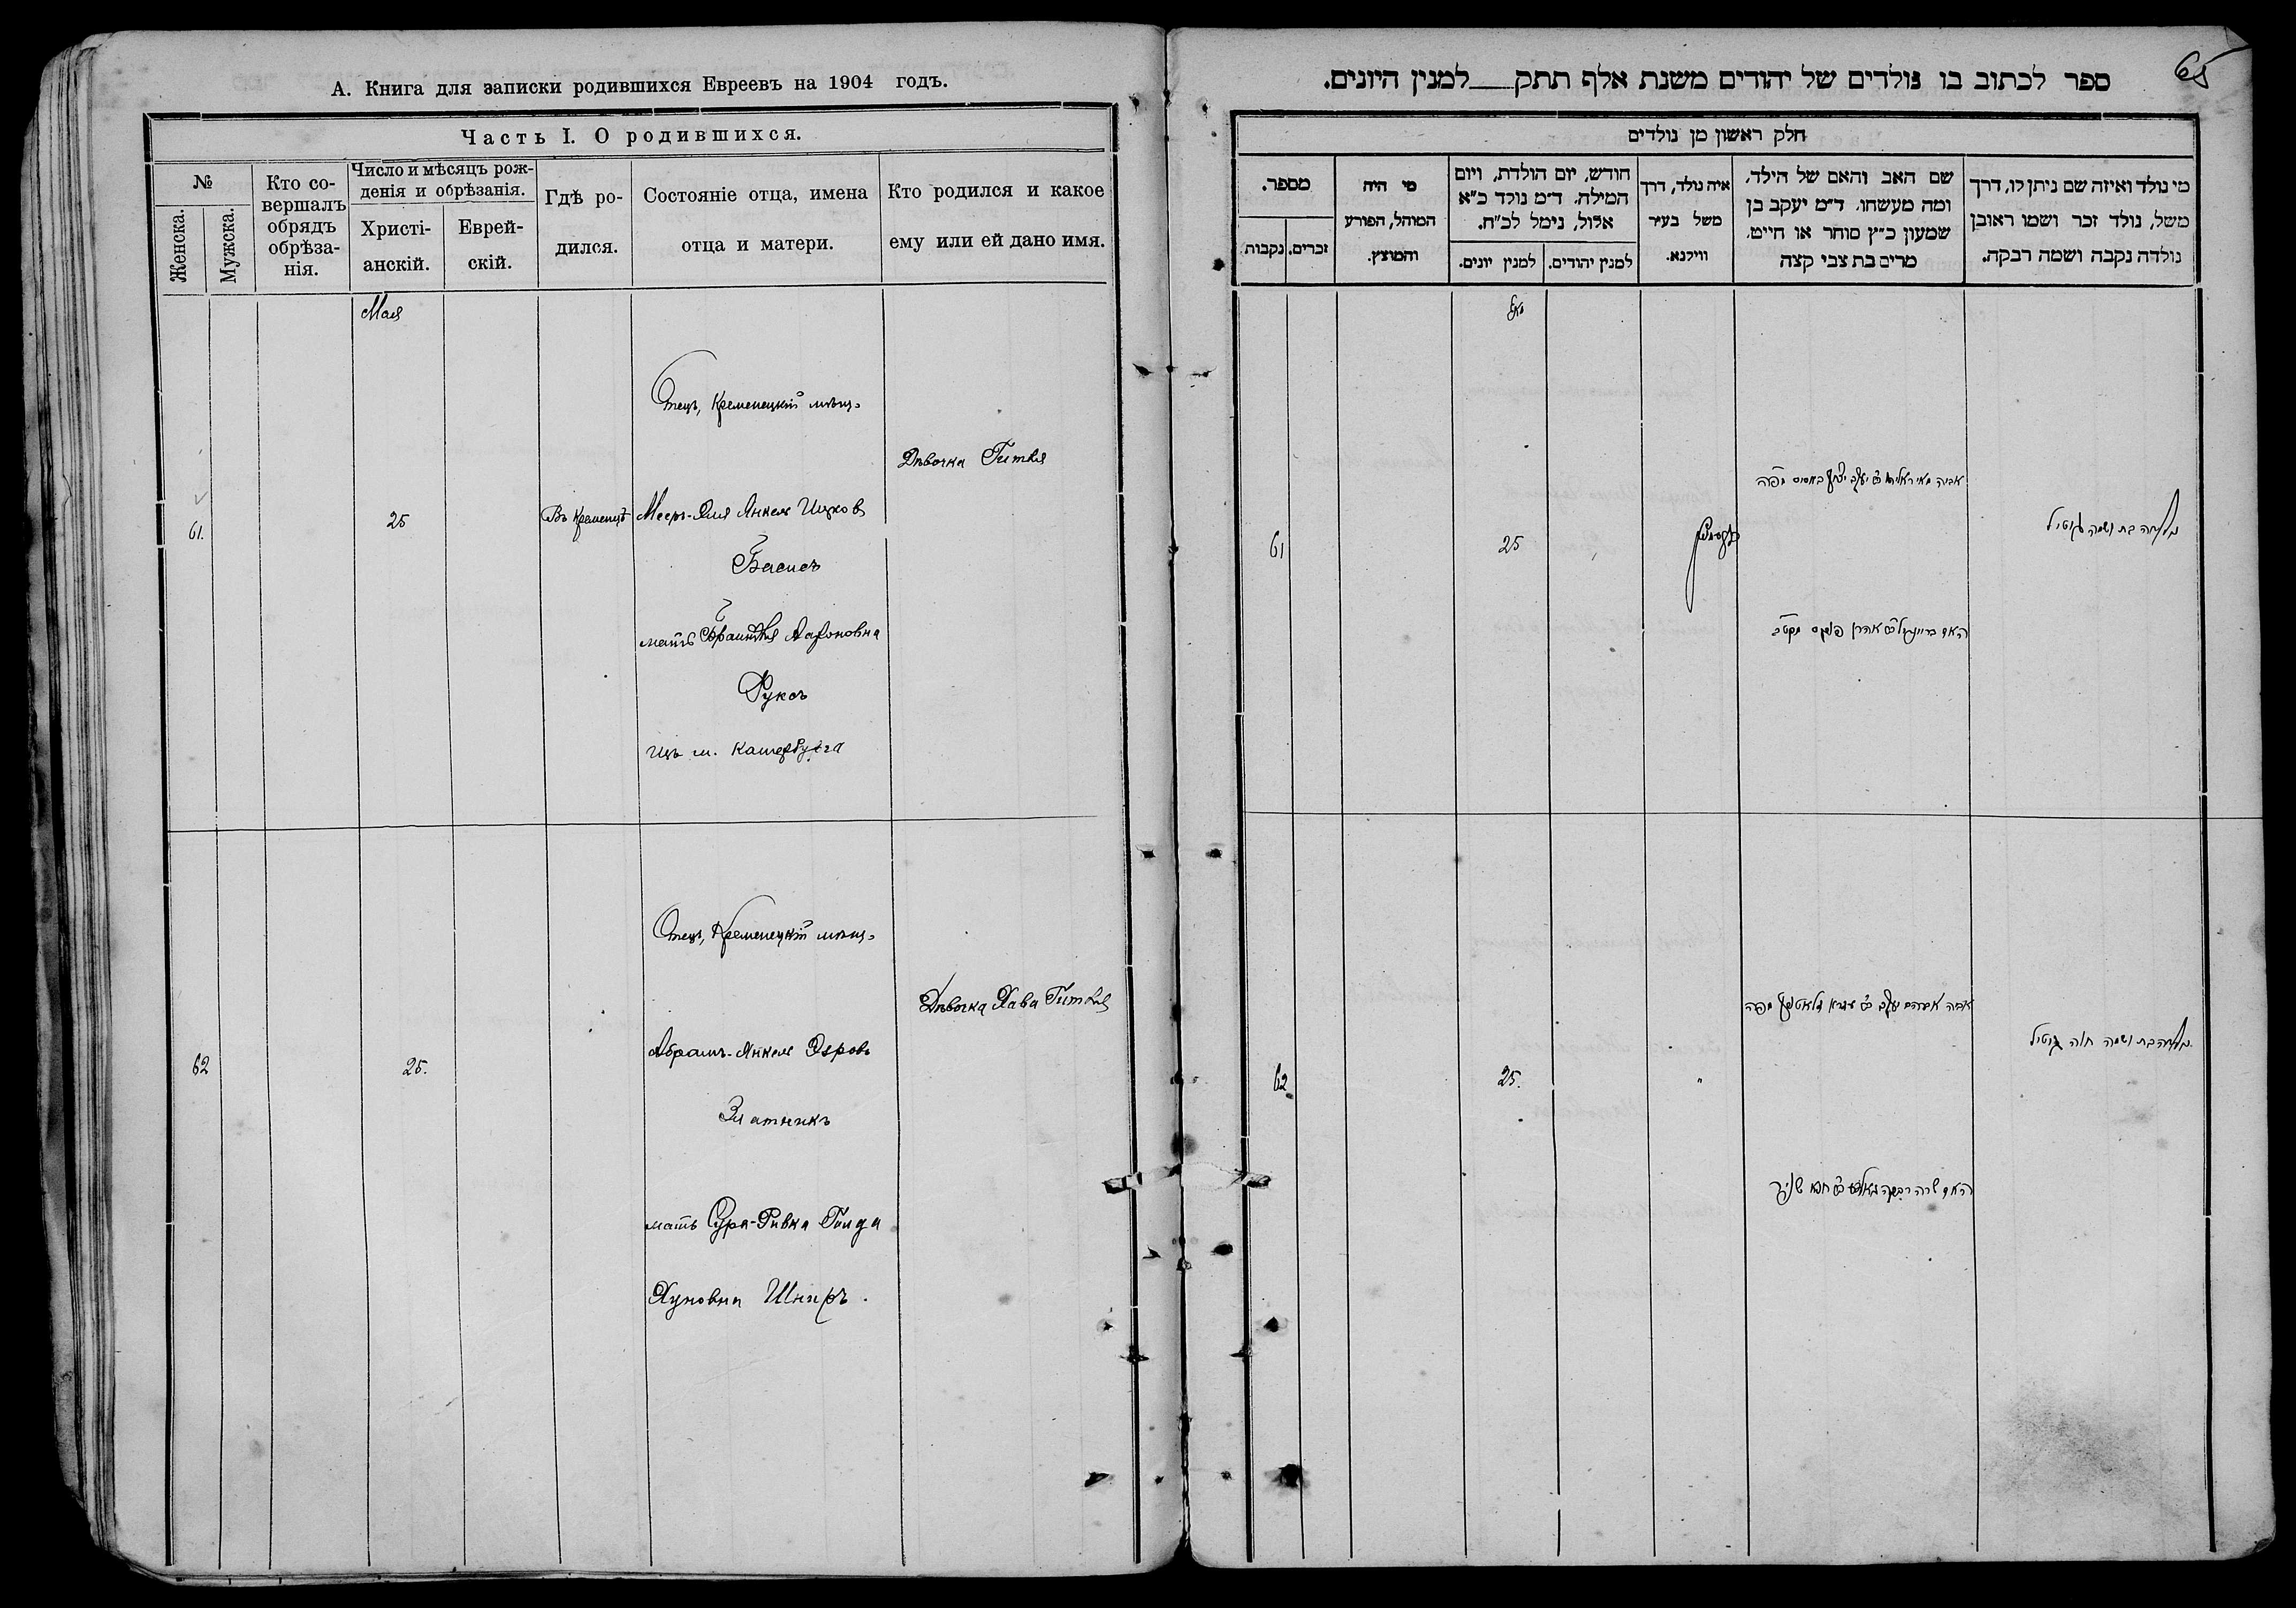 А. Книга для записки родившихся Евреевъ на 1904 годъ.
Часть I. О родившихся.
№
Женска.
Мужска.
Кто со-
вершалъ
обрядъ
обрѣза-
нія.
Число и мѣсяцъ рож-
денія и обрѣзанія.
Христі-
анскій.
Еврей-
скій.
Гдѣ ро-
дился.
Состояніе отца, имена
отца и матери.
Кто родился и какое
ему или ей дано имя.
Мая
61.
25
Въ Кременцѣ
Отецъ, Кременецкій мѣщ=
Мееръ-Эля Янкель Ицков
Басисъ
мать Браинделя Аароновна
Фуксъ
изъ м. Катербурга
Дѣвочка Гителя
62
25.
Отецъ, Кременецкій мѣщ=
Абрамъ-Янкель Эзровъ
Златникъ
мать Сура-Ривка Голда
Хуновна Шниръ.
Дѣвочка Хава Гителя
65
ספר לכתוב בו נולדים של יהודים משנת אלף תתק למנין היונים.
חלק ראשון מן נולדים
מספר.
נקבות
זכרים.
מי היה
המוהל, הפורע
והמוצץ.
חודש, יום הולדת, ויום
המילה. ד״מ נולד כ״א
אלול, נימל לכ״ח.
למנין יונים.
למנין יהודים.
איה נולד, דרך
משל בעיר
ווילנא.
שם האב והאם של הילד,
ומה מעשהו. ד״מ יעקב בן
שמעון כ״ץ סוחר או חייט,
מרים בת צבי קצה
מי נולד ואיזה שם ניתן לו, דרך
משל, נולד זכר ושמו ראובן
נולדה נקבה ושמה רבקה.
מאי
61
25
נולדה בת ושמה גיטיל
62
25.
"
נולדה בת ושמה חוה גיטיל